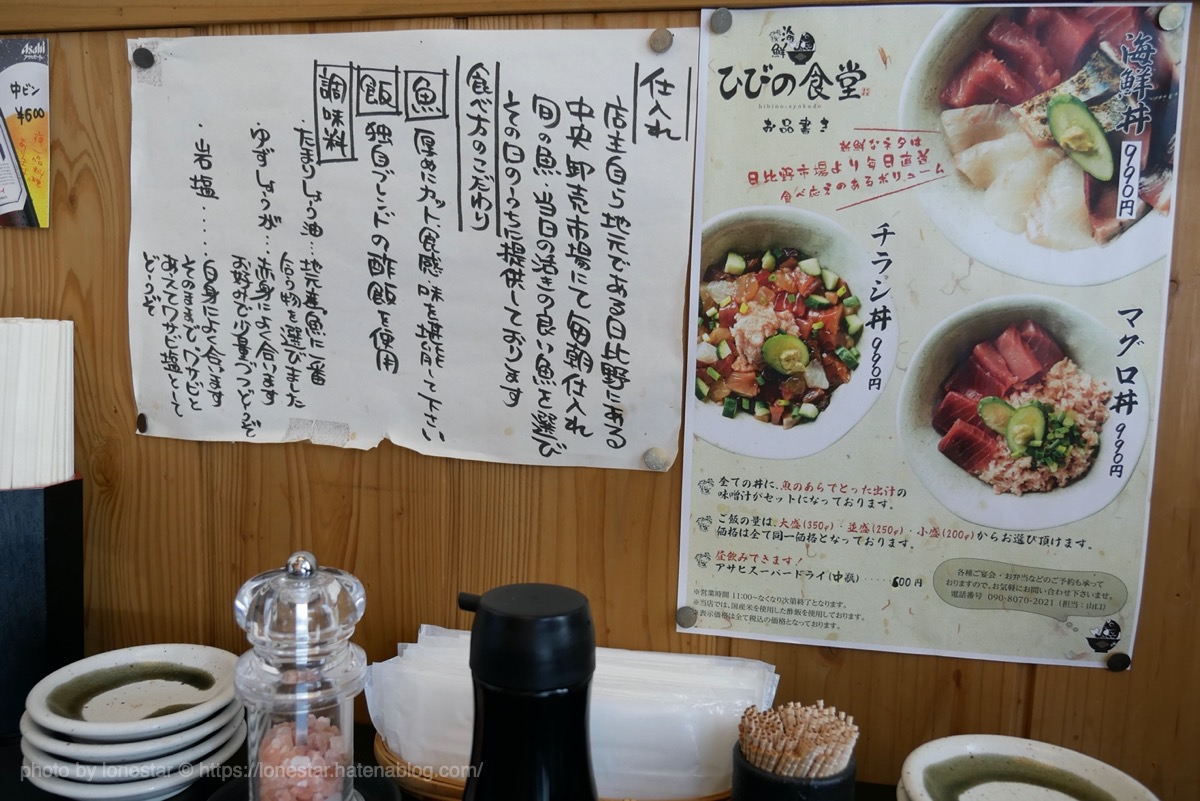 Asahi
中ビン
¥600
仕入れ
店主自ら地元である日比野にある
中央卸売市場にて毎朝仕入れ
旬の魚・当日の活きの良い魚を選び
その日のうちに提供しております
食べ方のこだわり
魚 厚めにカット、食感・味を堪能して下さい
飯 独自ブレンドの酢飯を使用
調味料
・たまりしょう油…地元産、魚に一番
合う物を選びました
・ゆずしょうが…赤身によく合います
お好みで少量づつどうぞ
・岩塩……白身によく合います
そのままで、ワサビと
あえてワサビ塩として
どうぞ
海鮮
ひびの食堂
hibino-syokudo
お品書き
新鮮なネタは
日比野市場より毎日直送
食べ応えのあるボリューム
海鮮丼 990円
チラシ丼 990円
マグロ丼 990円
全ての丼に、魚のあらでとった出汁の
味噌汁がセットになっております。
ご飯の量は、大盛(350g)・並盛(250g)・小盛(200g)からお選び頂けます。
価格は全て同一価格となっております。
昼飲みできます！
アサヒスーパードライ(中瓶)・・・・・600円
※営業時間 11:00〜なくなり次第終了となります。
※当店では、国産米を使用した酢飯を使用しております。
※表示価格は全て税込の価格となっております。
各種ご宴会・お弁当などのご予約も承って
おりますので、お気軽にお問い合わせ下さいませ。
電話番号 090-8070-2021（担当：山口）
photo by lonestar © https://lonestar.hatenablog.com/